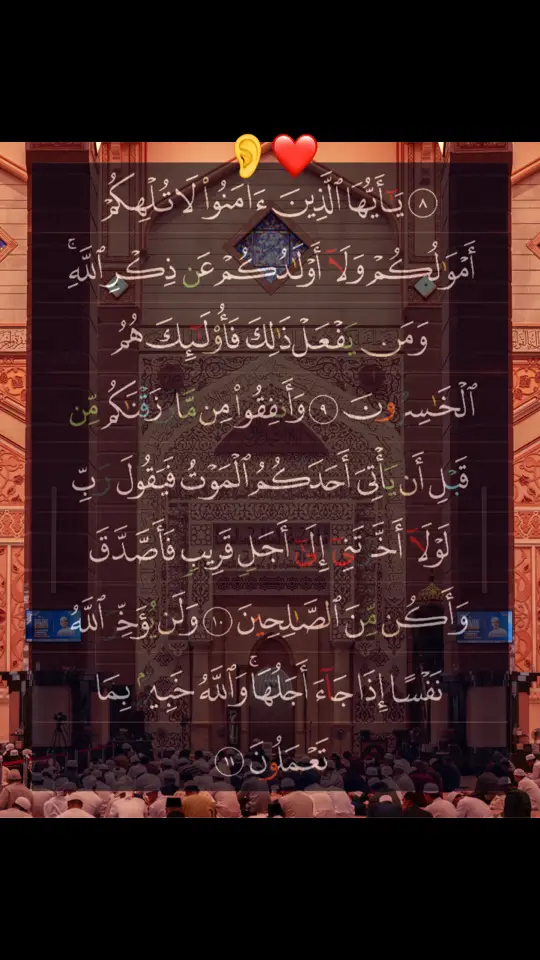 ٨ يَـٰٓأَيُّهَا ٱلَّذِينَ ءَامَنُوا۟ لَا تُلْهِكُمْ
أَمْوَٰلُكُمْ وَلَآ أَوْلَـٰدُكُمْ عَن ذِكْرِ ٱللَّهِ ۚ
وَمَن يَفْعَلْ ذَٰلِكَ فَأُو۟لَـٰٓئِكَ هُمُ
ٱلْخَـٰسِرُونَ ٩ وَأَنفِقُوا۟ مِن مَّا رَزَقْنَـٰكُم مِّن
قَبْلِ أَن يَأْتِىَ أَحَدَكُمُ ٱلْمَوْتُ فَيَقُولَ رَبِّ
لَوْلَآ أَخَّرْتَنِىٓ إِلَىٰٓ أَجَلٍ قَرِيبٍ فَأَصَّدَّقَ
وَأَكُن مِّنَ ٱلصَّـٰلِحِينَ ١٠ وَلَن يُؤَخِّرَ ٱللَّهُ
نَفْسًا إِذَا جَآءَ أَجَلُهَا ۚ وَٱللَّهُ خَبِيرٌۢ بِمَا
تَعْمَلُونَ ١١